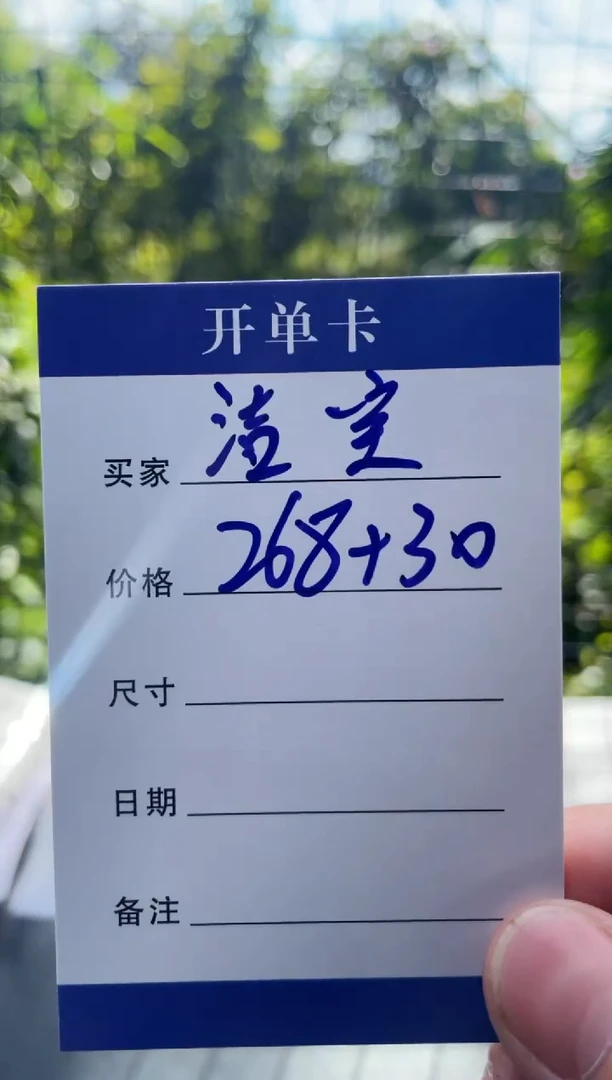 开单卡
买家 洁宝
价格 268+30
尺寸
日期
备注